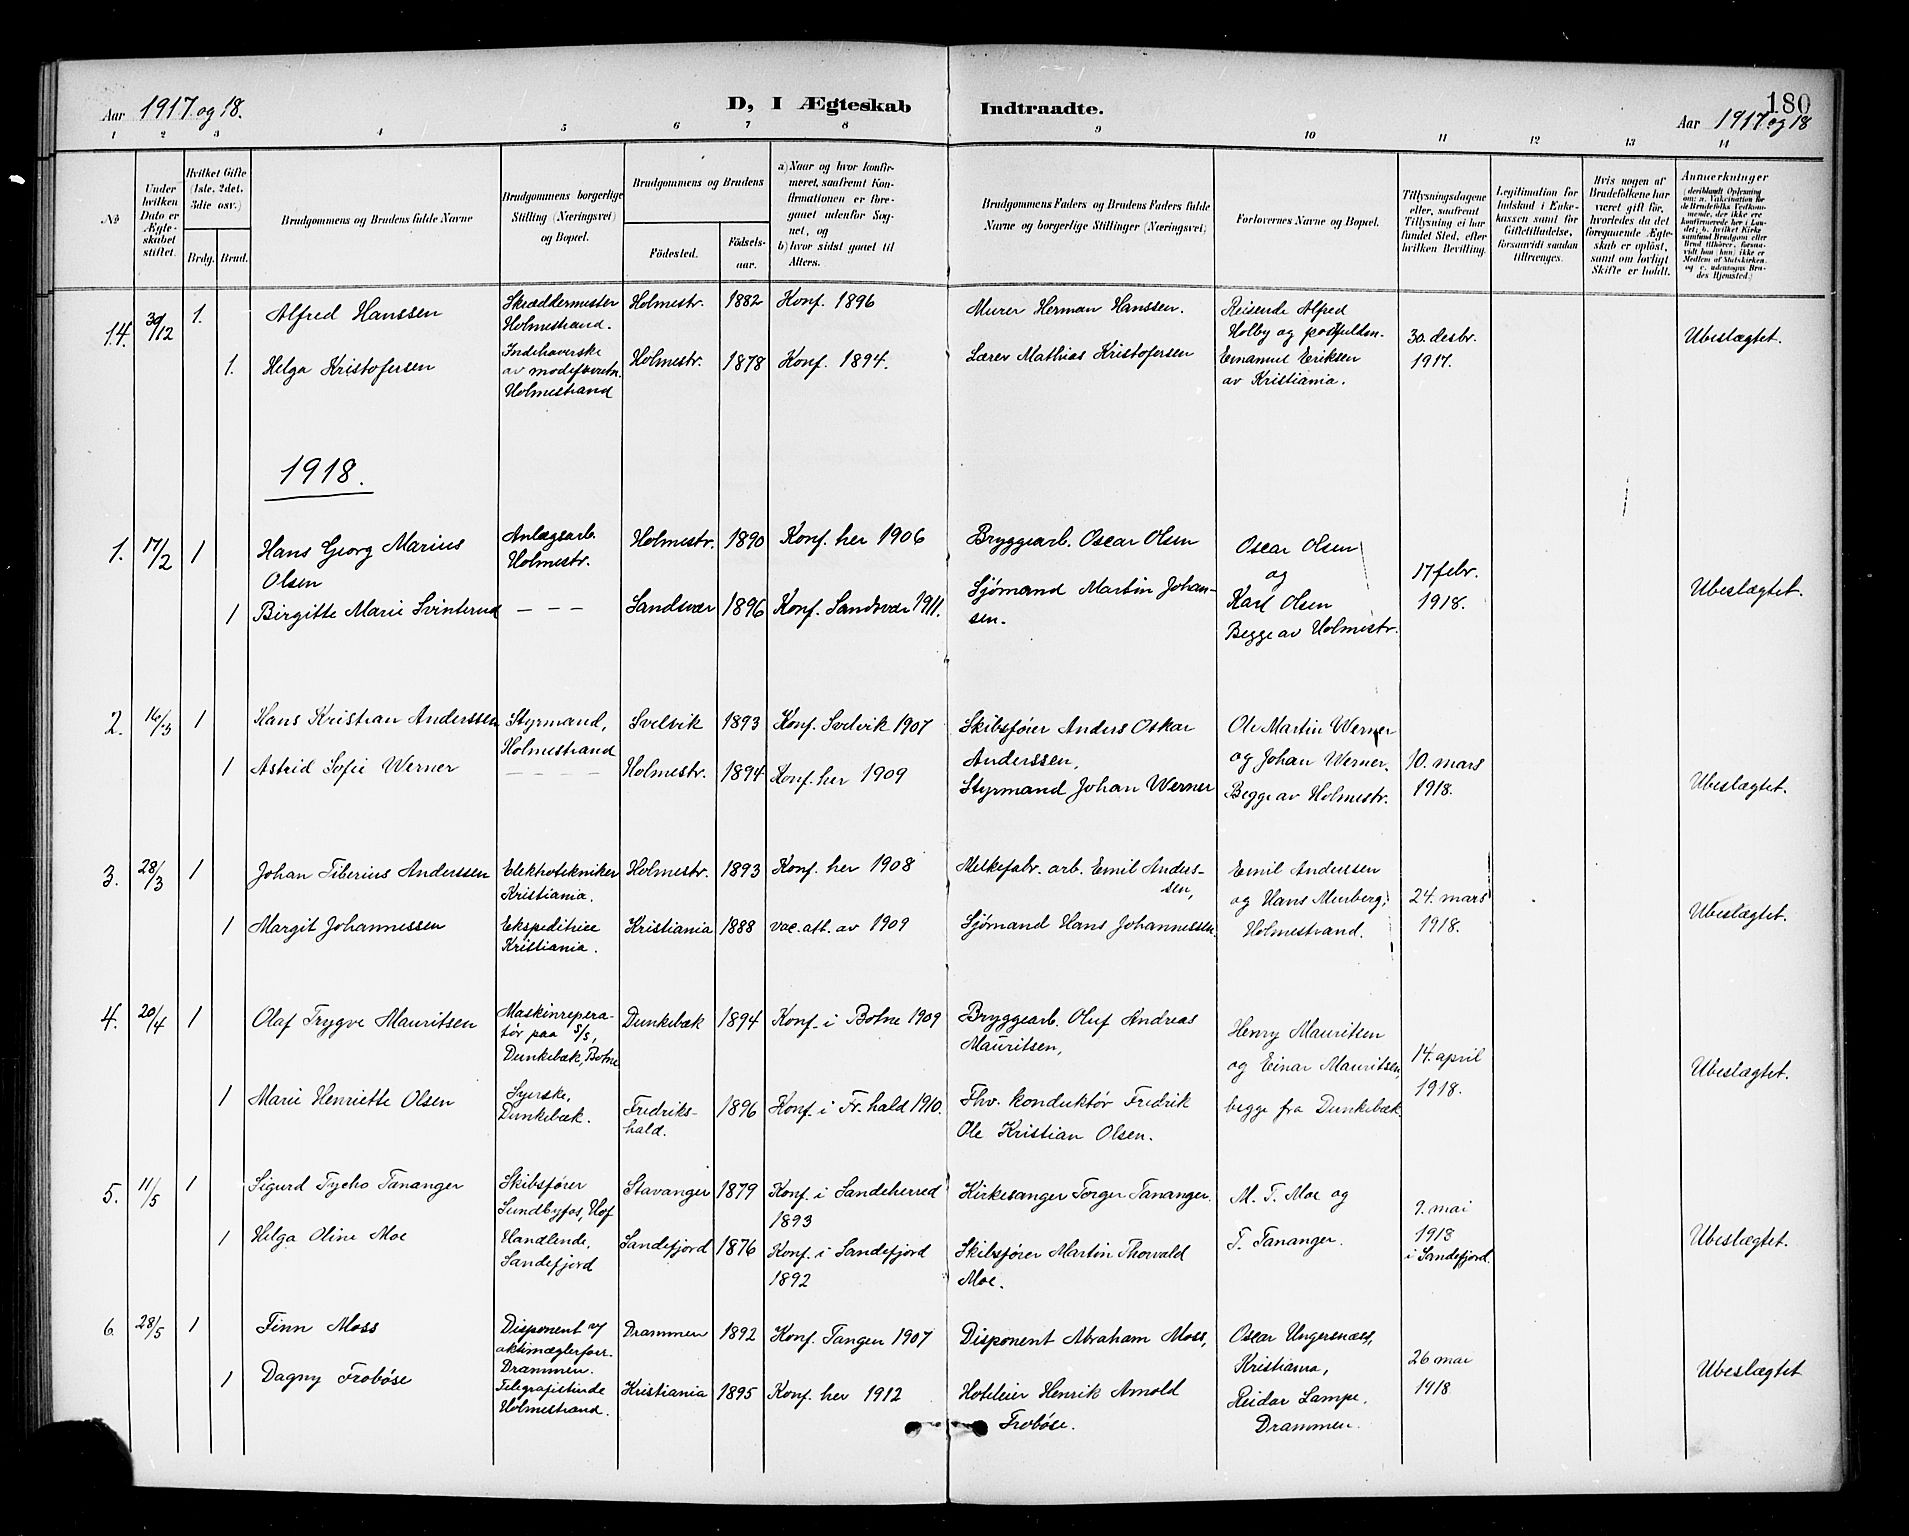 Aar 1917 og 18.
D, I Ægteskab
Indtraadte.
180
Aar 1917 og 18
1 2 3 4 5 6 7 8 9 10 11 12 13 14
No
Under hvilken Dato er Ægteskabet stiftet.
Hvilket Gifte (1ste, 2det, 3die osv.)
Brdg. Brud.
Brudgommens og Brudens fulde Navne
Brudgommens borgerlige Stilling (Næringsvei) og Bopæl.
Brudgommens og Brudens
Fødested.
Fødselsaar.
a) Naar og hvor konfirmeret, saafremt Konfirmationen er foregaaet udenfor Sognet, og
b) hvor sidst gaaet til Alters.
Brudgommens Faders og Brudens Faders fulde Navne og borgerlige Stillinger (Næringsvei)
Forlovernes Navne og Bopæl.
Tillysningsdagene eller, saafremt Tillysning ei har fundet Sted, efter hvilken Bevilling.
Legitimation for Indskud i Enkekassen samt for Giftetilladelse, forsaavidt saadan tiltrænges.
Hvis nogen af Brudefolkene har været gift før, hvorledes da det foregaaende Ægteskab er opløst, samt om lovligt Skifte er holdt.
Anmærkninger
(deriblandt Oplysning om: a. Vakcination for de Brudefolks Vedkommende, der ikke ere konfirmerede her i Landet; b. hvilket Kirkesamfund Brudgom eller Brud tilhører, forsaavidt han (hun) ikke er Medlem af Statskirken og c. udensogns Brudes Hjemsted.)
14. 30/12 1. Alfred Hanssen Skræddermester Holmestrand. Holmestr. 1882 Konf. 1896 Murer Herman Hanssen. Reisende Alfred Holby og postfuldm. Emanuel Eriksen av Kristiania. 30. desbr. 1917. Ubeslægtet.
1. Helga Kristofersen Indehaverske av modeforretn. Holmestrand Holmestr. 1878 Konf. 1894. Lærer Mathias Kristofersen
1918.
1. 17/2 1 Hans Georg Marius Olsen Anlægsarb. Holmestr. Holmestr. 1890 Konf. her 1906 Bryggearb. Oscar Olsen Oscar Olsen og Karl Olsen Begge av Holmestr. 17 febr. 1918. Ubeslægtet.
1 Birgitte Marie Svinterud – – – Sandsvær 1896 Konf. Sandsvær 1911. Sjømand Martin Johansen.
2. 16/3 1 Hans Kristian Anderssen Styrmand, Holmestrand Svelvik 1893 Konf. Svelvik 1907 Skibsfører Anders Oskar Anderssen, Ole Martin Werner og Johan Werner. Begge av Holmestr. 10. mars 1918. Ubeslægtet.
1 Astrid Sofie Werner – – – – Holmestr. 1894 Konf. her 1909 Styrmand Johan Werner
3. 28/3 1 Johan Tiberius Anderssen Elektrotekniker Kristiania. Holmestr. 1893 Konf. her 1908 Melkefabr. arb. Emil Anderssen, Emil Anderssen og Hans Murberg, Holmestrand. 24. mars 1918. Ubeslægtet.
1 Margit Johannessen Ekspeditrice Kristiania. Kristiania 1888 vac. att. av 1909 Sjømand Hans Johannessen.
4. 20/4 1 Olaf Trygve Mauritsen Maskinreperatør paa S/S, Dunkebæk, Botne Dunkebæk 1894 Konf. i Botne 1909 Bryggearb. Oluf Andreas Mauritsen, Henry Mauritsen og Einar Mauritsen, begge fra Dunkebæk 14. april 1918. Ubeslægtet.
1 Marie Henriette Olsen Syerske, Dunkebæk. Fredrikshald. 1896 Konf. i Fr.hald 1910. Fhv. konduktør Fredrik Ole Kristian Olsen.
5. 11/5 1 Sigurd Tycho Tananger Skibsfører Sundbyfos, Hof Stavanger 1879 Konf. i Sandeherred 1893 Kirkesanger Torger Tananger. M. T. Moe og T. Tananger. 9. mai 1918 i Sandefjord. Ubeslægtet.
1 Helga Oline Moe Handlende, Sandefjord Sandefjord 1876 Konf. i Sandefjord 1892 Skibsfører Martin Thorvald Moe.
6. 28/5 1 Finn Moss Disponent v/ aktimæglerforr. Drammen. Drammen 1892 Konf. Tangen 1907 Disponent Abraham Moss, Oscar Ungersnæss, Kristiania, Reidar Lampe. Drammen. 26 mai 1918 Ubeslægtet
1 Dagny Frobøse Telegrafistinde Holmestrand. Kristiania 1895 Konf. her 1912 Hoteleier Henrik Arnold Frobøse.